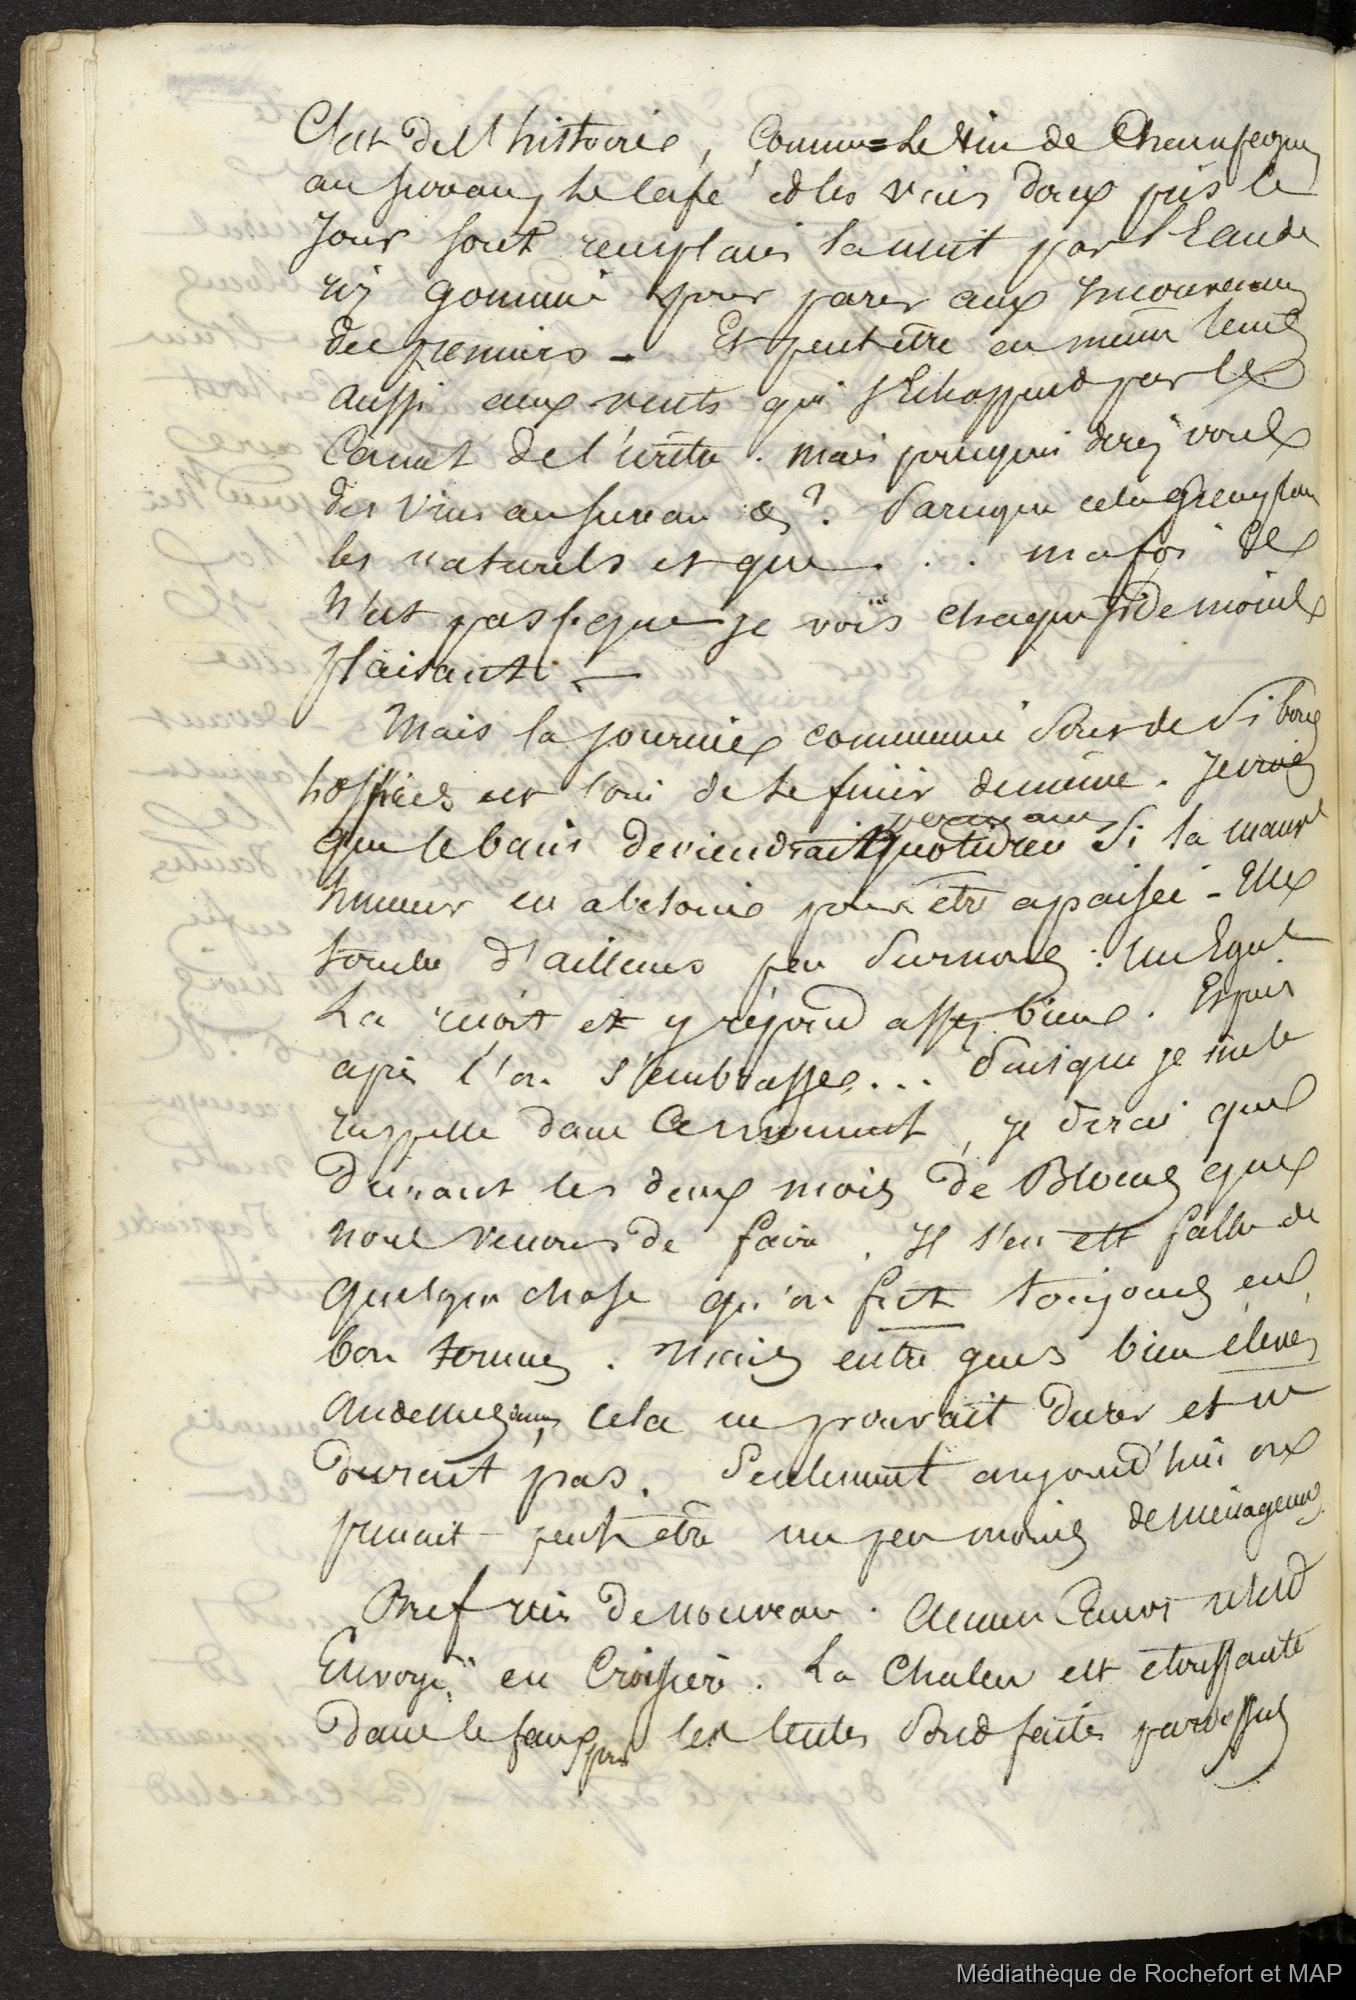 C'est de l'histoire, Comme = le vin de Champagne
au sureau, le café et les vins doux pris le
jour sont remplacés la nuit par l'Eau de
riz gommée pour parer aux inconvenients
des premiers _ Et peut être en meme tems
aussi aux vents qui s'Echappent par le
Canal de l'urètre . mais pourquoi direz vous
des vins au sureau &? Parceque cela remplace
les naturels et que . . . ma foi Il
n'est pas que je vois chaque de moins
plaisant . _
Mais la journée commencée Sous de Si bons
hospices est loin de se finir de même . Je crois
que le bain deviendrait quotidien Si la mauv
humeur en a besoin pour être apaisée - Elle
tombe d'ailleurs peu Sur nous : un Egal
La reçoit et y répond assez bien . Et puis
après l'on s'embrasse ... Puisque je me le
rappelle dans ce moment, je dirai que
Durant les deux mois de Blocus que
nous venons de faire . Il s'en est fallu de
quelque chose qu'on fut toujours en
bon termes . Mais entre gens bien élevés
cela ne pouvait durer et ne
durait pas . Seulement aujourd'hui on
prenait peut être un peu moins de ménagemens
Bref rien de nouveau . Aucun Canot n'est
Envoyé en Croisière . La Chaleur est étouffante
dans le faux pont les tentes Sont faites par dessus
Médiathèque de Rochefort et MAP